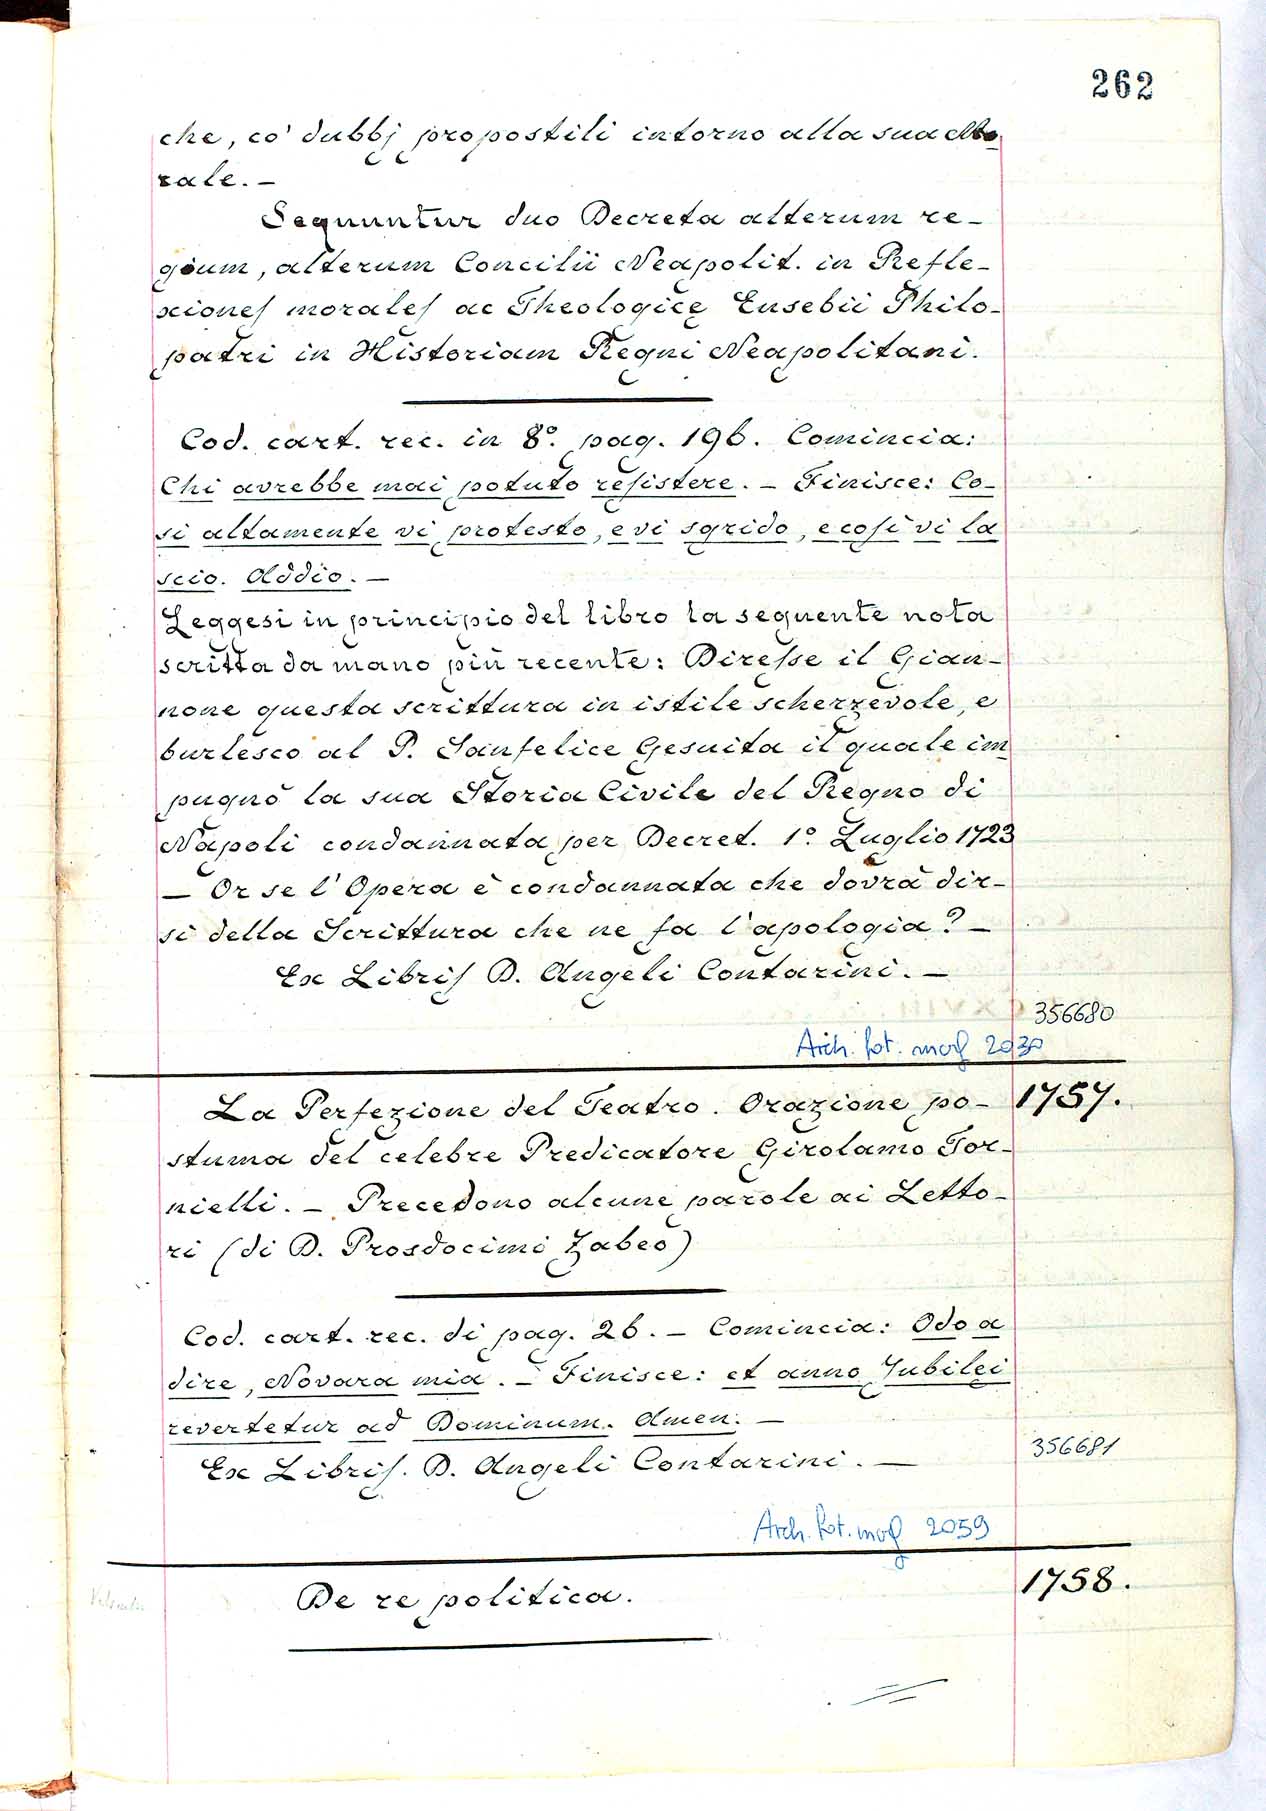 262
che, co' dubbj propostili intorno alla sua Mo
rale. –
Sequuntur duo Decreta alterum re-
gium, alterum Concilii Neapolit. in Refle-
xiones morales ac Theologice Eusebii Philo-
patri in Historiam Regni Neapolitani.
Cod. cart. rec. in 8°. pag. 196. Comincia:
Chi avrebbe mai potuto resistere. – Finisce: Co-
si altamente vi protesto, e vi sgrido, e cosi vi la
scio. Addio. –
Leggesi in principio del libro la seguente nota
scritta da mano più recente: Diresse il Gian-
none questa scrittura in istile scherzevole, e
burlesco al P. Sanfelice Gesuita il quale im
pugnò la sua Storia Civile del Regno di
Napoli condannata per Decret. 1° Luglio 1723
– Or se l'Opera è condannata che dovrà dir-
si della Scrittura che ne fa l'apologia? –
Ex Libris D. Angeli Contarini. –
356680
Arch. fot. marc 2030
La Perfezione del Teatro. Orazione po- 1757.
stuma del celebre Predicatore Girolamo Tor-
nielli. – Precedono alcune parole ai Letto-
ri (di D. Prosdocimo Zabeo)
Cod. cart. rec. di pag. 26. – Comincia: Odo a
dire, Novara mia. – Finisce: et anno Jubilei
revertetur ad Dominum. Amen. –
356681
Ex Libris. D. Angeli Contarini. –
Arch. fot. marc 2059
De re politica. 1758.